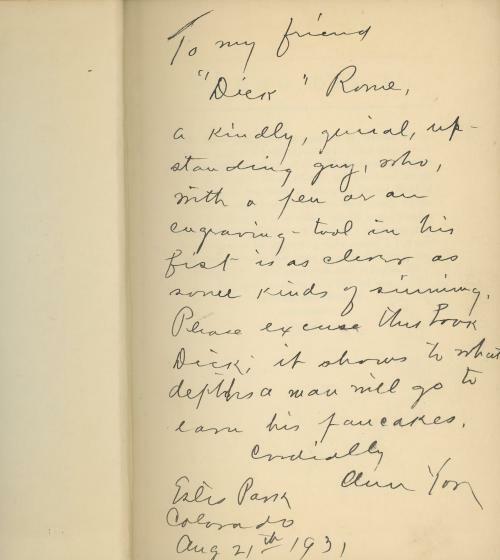 To my friend
"Dick" Rome,
a kindly, genial, up-
standing guy, who,
with a pen or an
engraving-tool in his
fist is as clever as
some kinds of sinning.
Please excuse this book
Dick; it shows to what
depths a man will go to
earn his pancakes.
Cordially
Estes Park
Colorado
Aug 21th 1931